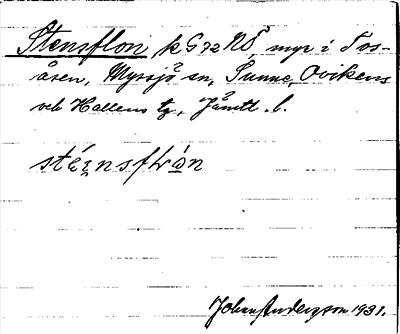 Stensflon, k G 72 NÖ, myr i Fos-
åsen, Myrsjö sn, Sunne, Ovikens
och Hallens tg, Jämtl. l.
Johan Anderzson 1931.